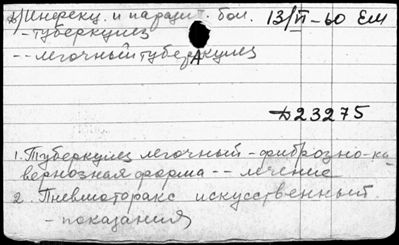 Инфекц. и паразит. бол. 13/VI-60 Ем
- туберкулез
-- легочный туберкулез
А
Д23275
1. Туберкулез легочный - фиброзно-ка-
вернозная форма -- лечение
2. Пневмоторакс искусственный
- показания